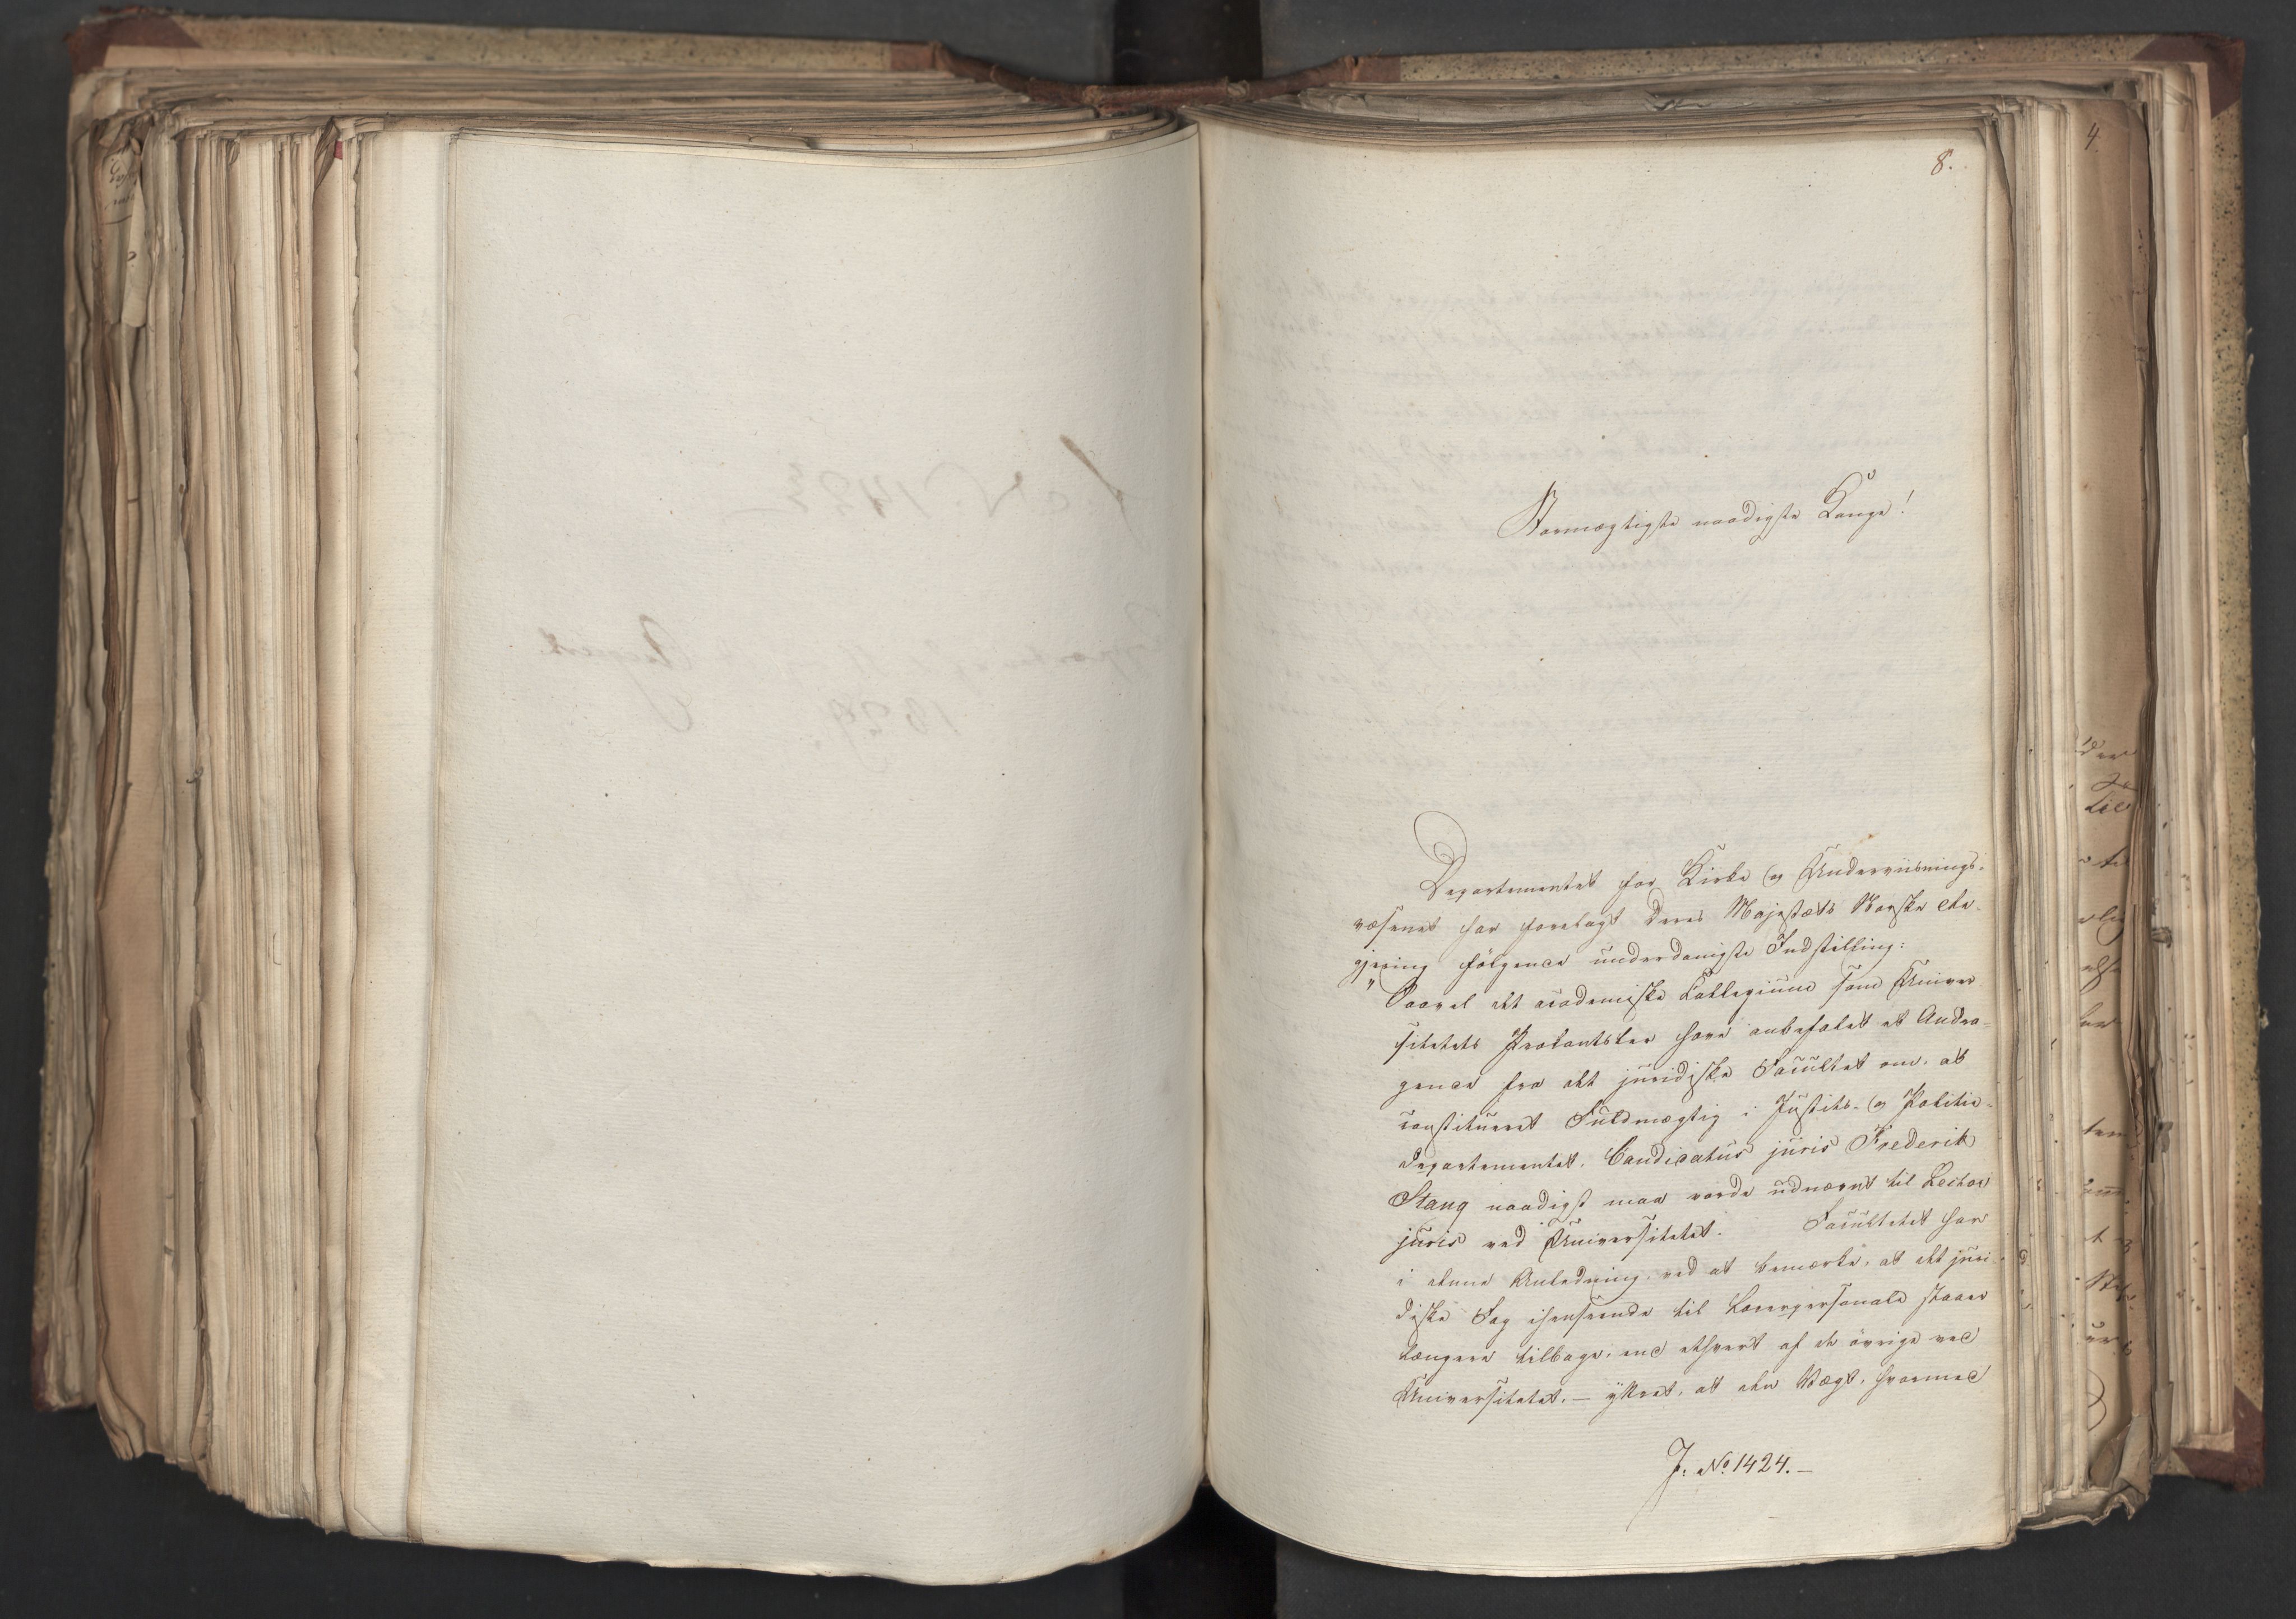 8.
Stormægtigste naadigste Konge!
Departementet for Kirke og Underviisnings-
væsenet har forelagt Deres Majestæts Norske Re-
gjering følgende underdanigste Indstilling:
"Saavel det academiske Collegium som Univer
sitetets Prokantsler have anbefalet et Andra-
gende fra det juridiske Facultet om, at
constitueret Fuldmægtig i Justits- og Politie-
Departementet, Candidatus juris Frederik
Stang naadigst maa vorde udnævnt til Lector
juris ved Universitetet. Facultetet har
i denne Anledning, ved at bemærke, at det juri-
diske Fag ihenseende til Lærerpersonale staaer
længere tilbage, end ethvert af de övrige ved
Universitetet, — yttret, at den Vægt, hvormed
J: No 1424. —
4.